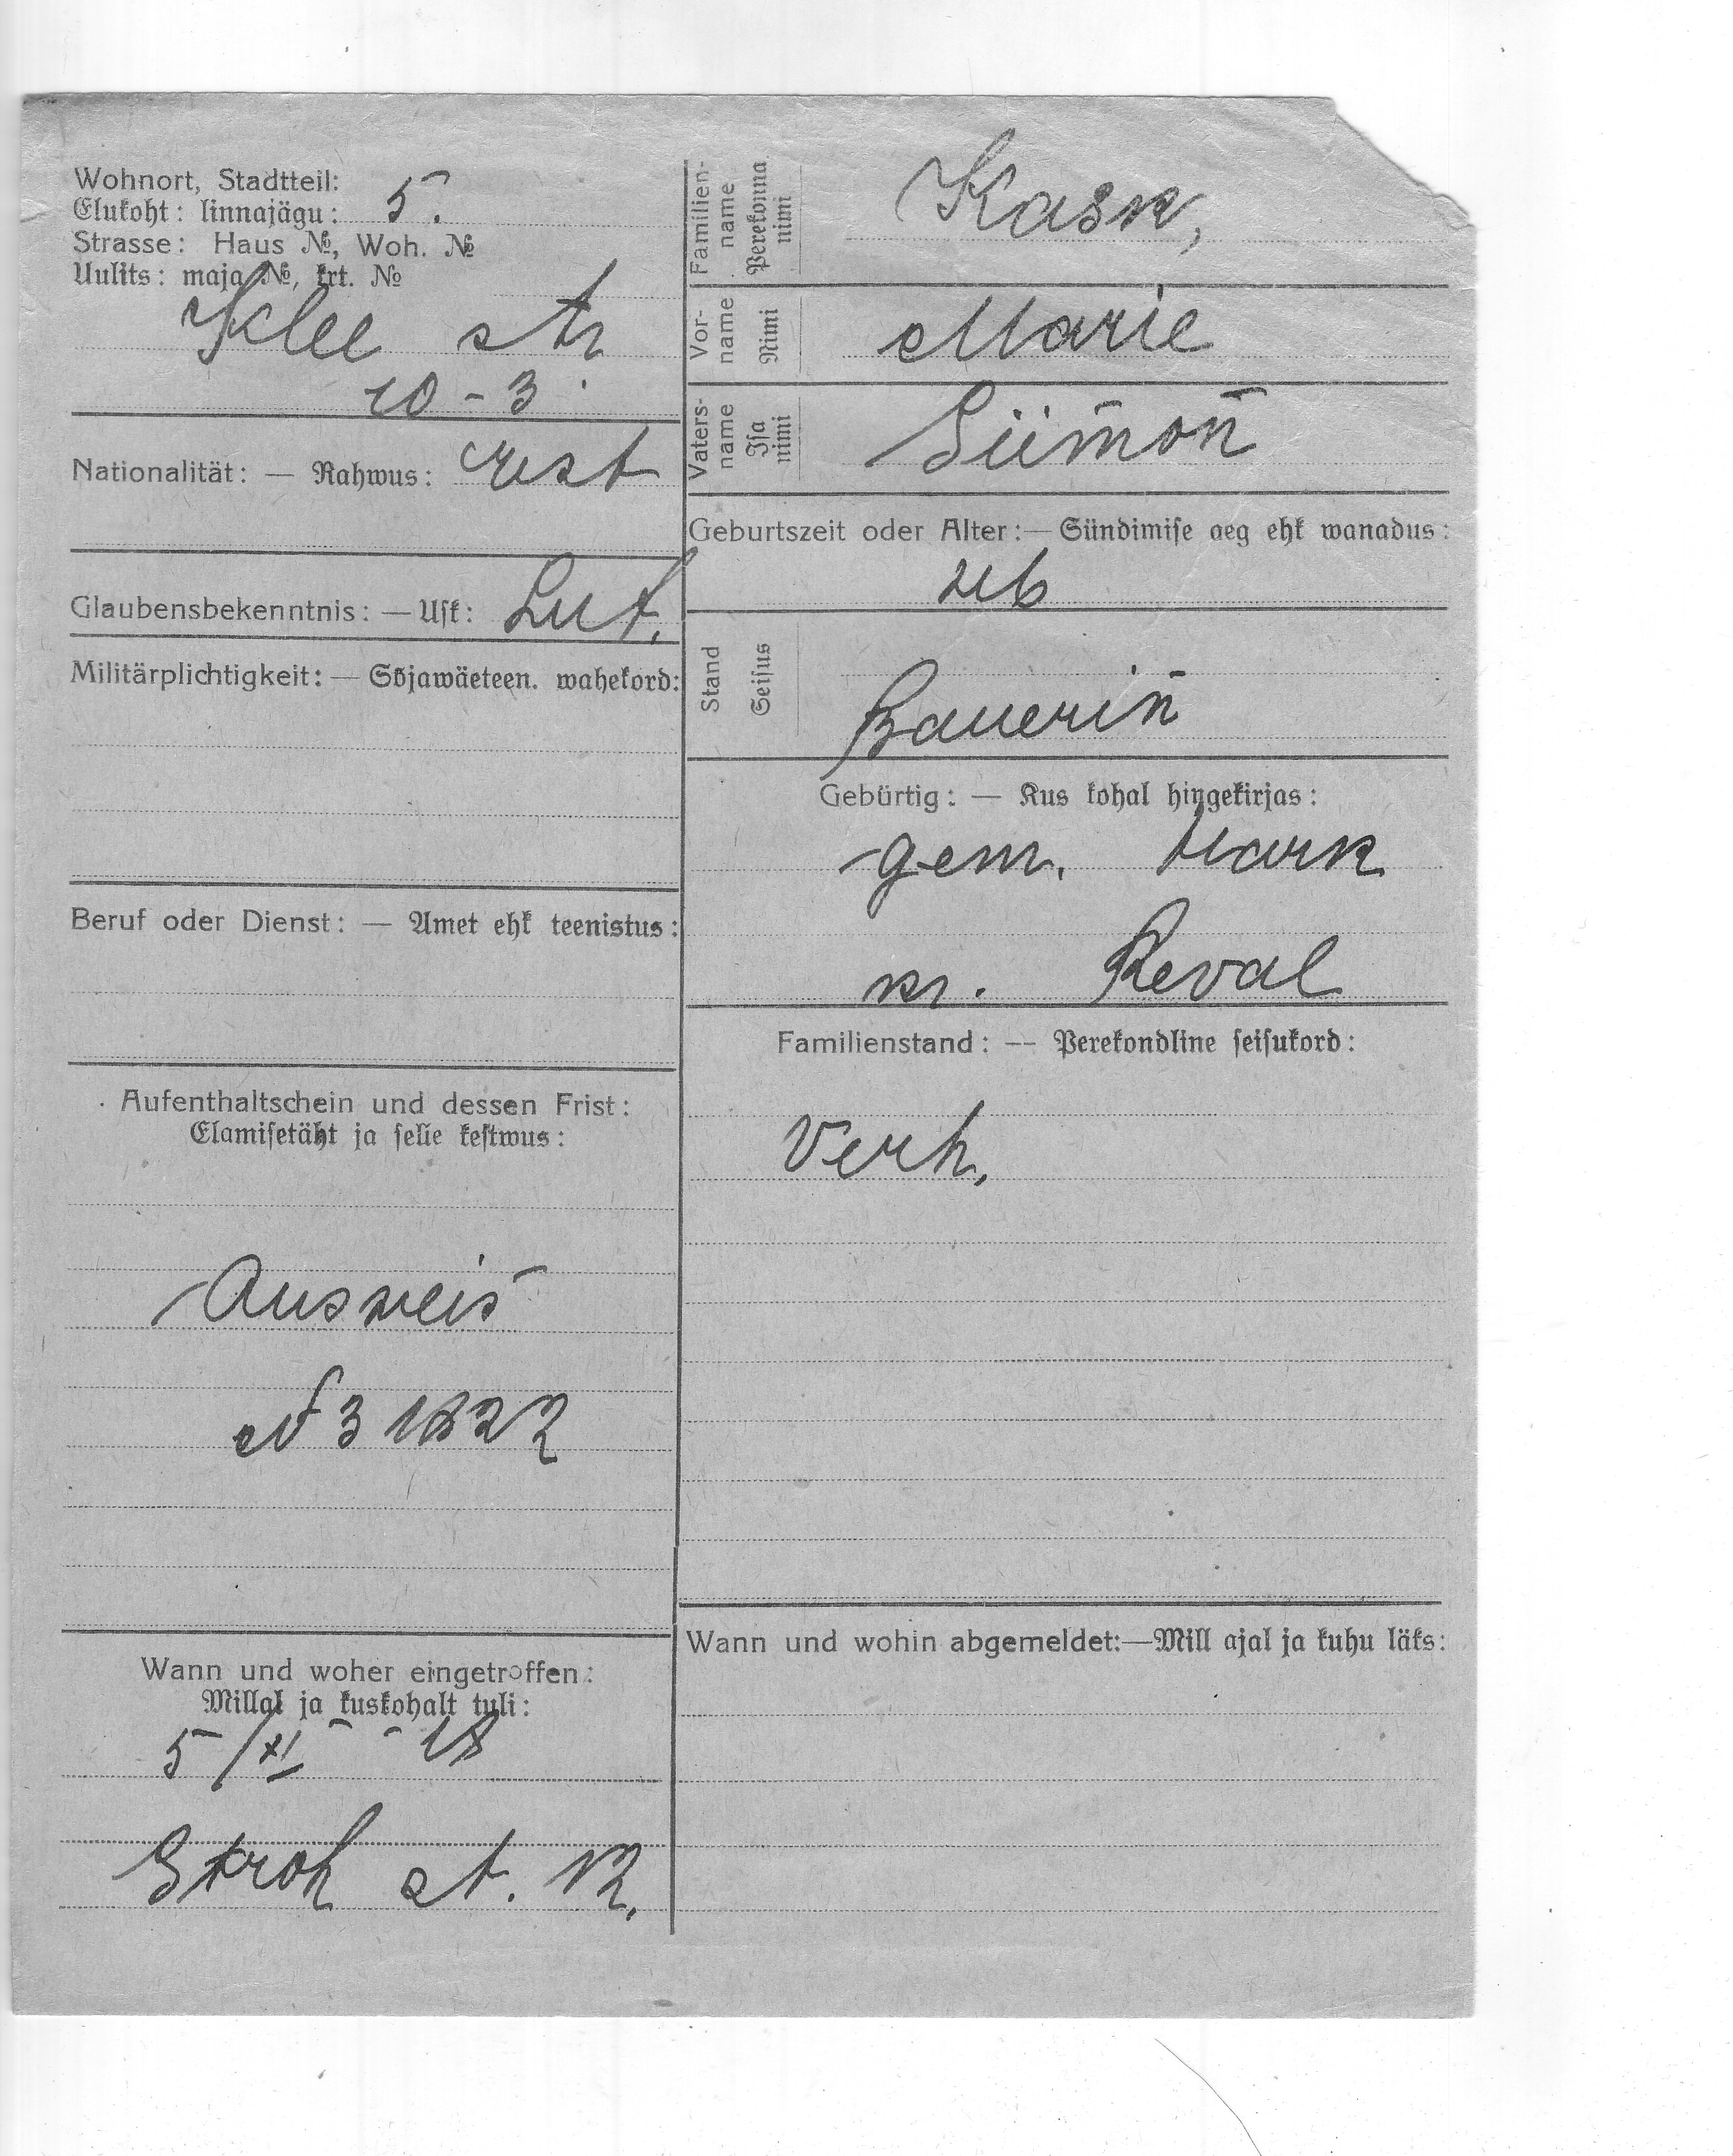 Wohnort, Stadtteil:
Elukoht: linnajägu: 5.
Strasse: Haus №, Woh. №
Uulits: maja №, krt. №
Klee str
10 - 3.
Nationalität: — Rahwus: est
Glaubensbekenntnis: — Usk: Lut.
Militärplichtigkeit: — Sõjawäeteen. wahekord:
Beruf oder Dienst: — Amet ehk teenistus:
Aufenthaltschein und dessen Frist:
Elamisetäht ja selle kestwus:
Ausweis
N 31822
Wann und woher eingetroffen:
Millal ja kuskohalt tuli:
5/XI - 18
Stroh st. 12.
Familien-
name
Perekonna
nimi
Kask,
Vor-
name
Nimi
Marie
Vaters-
name
Isa
nimi
Siimon
Geburtszeit oder Alter: — Sündimise aeg ehk wanadus:
Stand
Seisus
Bauerin
Gebürtig: — Kus kohal hingekirjas:
gem. Hark
kr. Reval
Familienstand: — Perekondline seisukord:
Verh.
Wann und wohin abgemeldet:—Mill ajal ja kuhu läks: